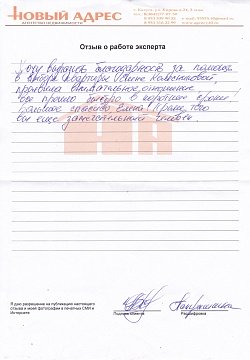 НОВЫЙ АДРЕС
АГЕНТСТВО НЕДВИЖИМОСТИ
Отзыв о работе эксперта
Хочу выразить благодарность за помощь
в выборе квартиры Елене
проявила внимательное отношение
все прошло быстро в короткие сроки!
Большое спасибо Елена! Кроме того
вы еще замечательный человек
Я даю разрешение на публикацию настоящего
отзыва и моей фотографии в печатных СМИ и
Интернете
Подпись клиента
Расшифровка